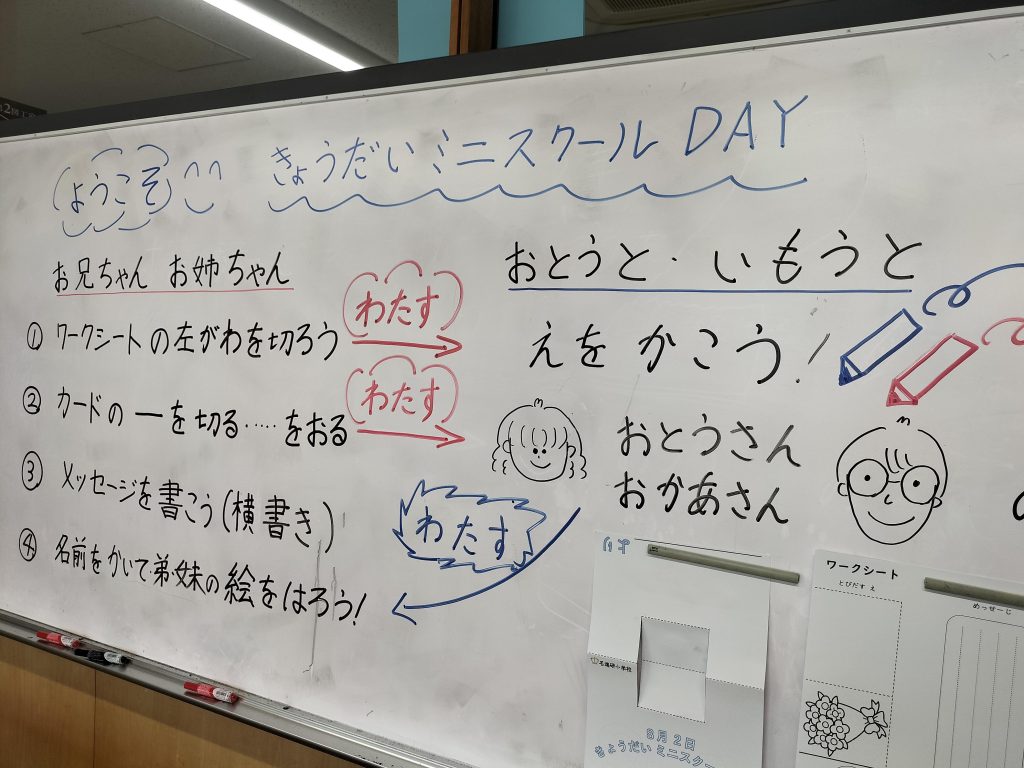 ようこそ
きょうだいミニスクール DAY
お兄ちゃん お姉ちゃん
① ワークシートの左がわを切ろう
わたす
② カードの ー を切る ····· をおる
わたす
③ メッセージを書こう(横書き)
④ 名前をかいて弟・妹の絵をはろう!
わたす
おとうと・いもうと
えを かこう!
おとうさん
おかあさん
の
8月2日
きょうだいミニスクー
ワークシート
とびだす え
めっせーじ